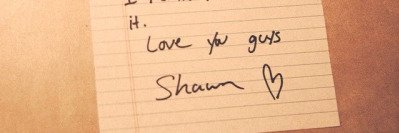 it.
Love you guys
Shawn